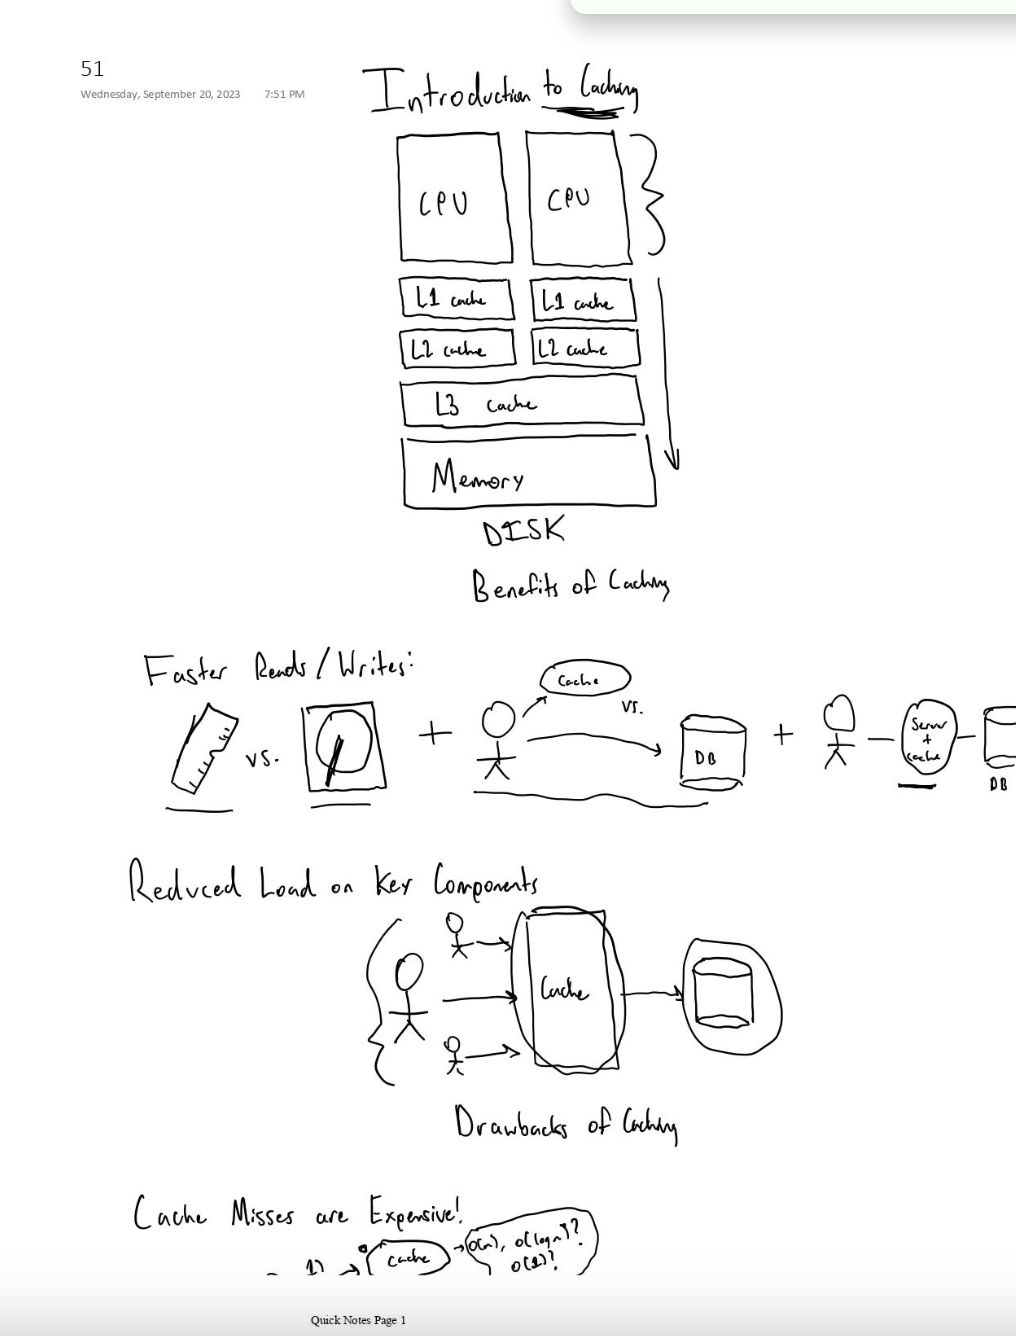 51
Wednesday, September 20, 2023 7:51 PM
Introduction to Caching
CPU CPU
L1 cache L1 cache
L2 cache L2 cache
L3 cache
Memory
DISK
Benefits of Caching
Faster Reads/Writes:
vs. + Cache vs. DB + Server + cache DB
Reduced Load on Key Components
Cache
Drawbacks of Caching
Cache Misses are Expensive!
1) cache O(n), O(logn)?
O(1)?
Quick Notes Page 1